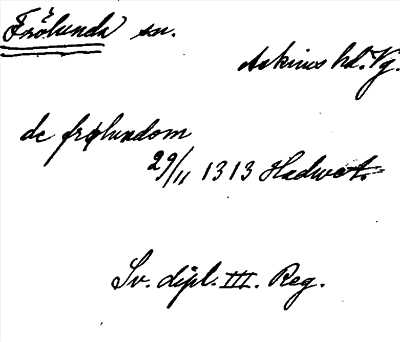 Frölunda sn.
Askims hd. Vg.
de frølundom
29/11 1313 Hadwet.
Sv. dipl. III. Reg.